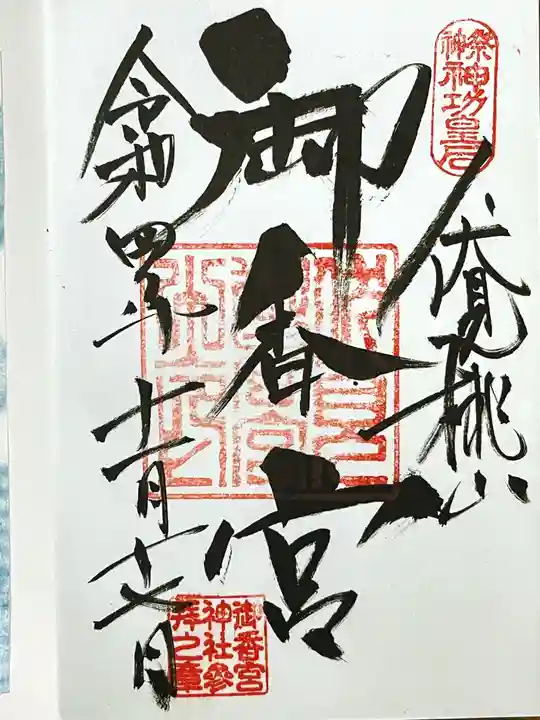 祭神神功皇后
伏見桃山
御香宮
令和四年十一月十七日
御香宮
神社参
拝之章